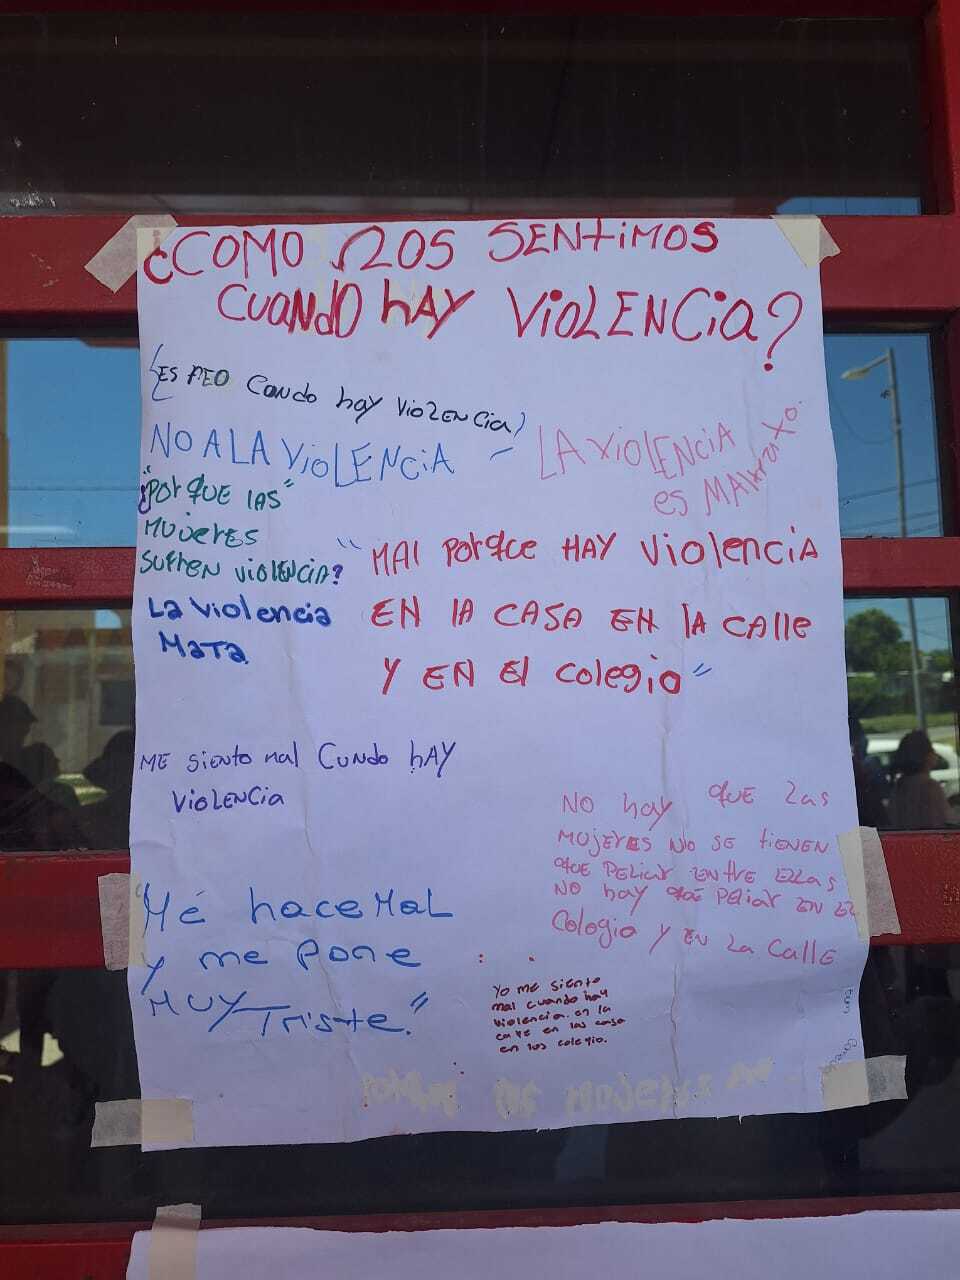 ¿COMO NOS SENTIMOS
CUANDO HAY VIOLENCIA?
(ES FEO Cando hay VIOLENCIA)
NO A LA VIOLENCIA -
LA VIOLENCIA
es MALtratxo.
"¿POR QUE LAS"
MUJERES
SUFREN VIOLENCIA?
La violencia
Mata
"MAl PorqCe HAY violencia
EN lA CASA EN la calle
Y EN El colegio"
ME siento mal Cundo hAY
VIOLENCIA
NO hay QUE Las
MUJERES NO SE TIENEN
QUE PELIAR ENTRE ELLAS
NO hay QUE PELIAR EN EL
Cologio y EN La CALLE
"Me hace MaL
y me Pone
MUY Triste."
Yo me siento
mal cuando hay
violencia. en la
calle en las casa
en los colegio.